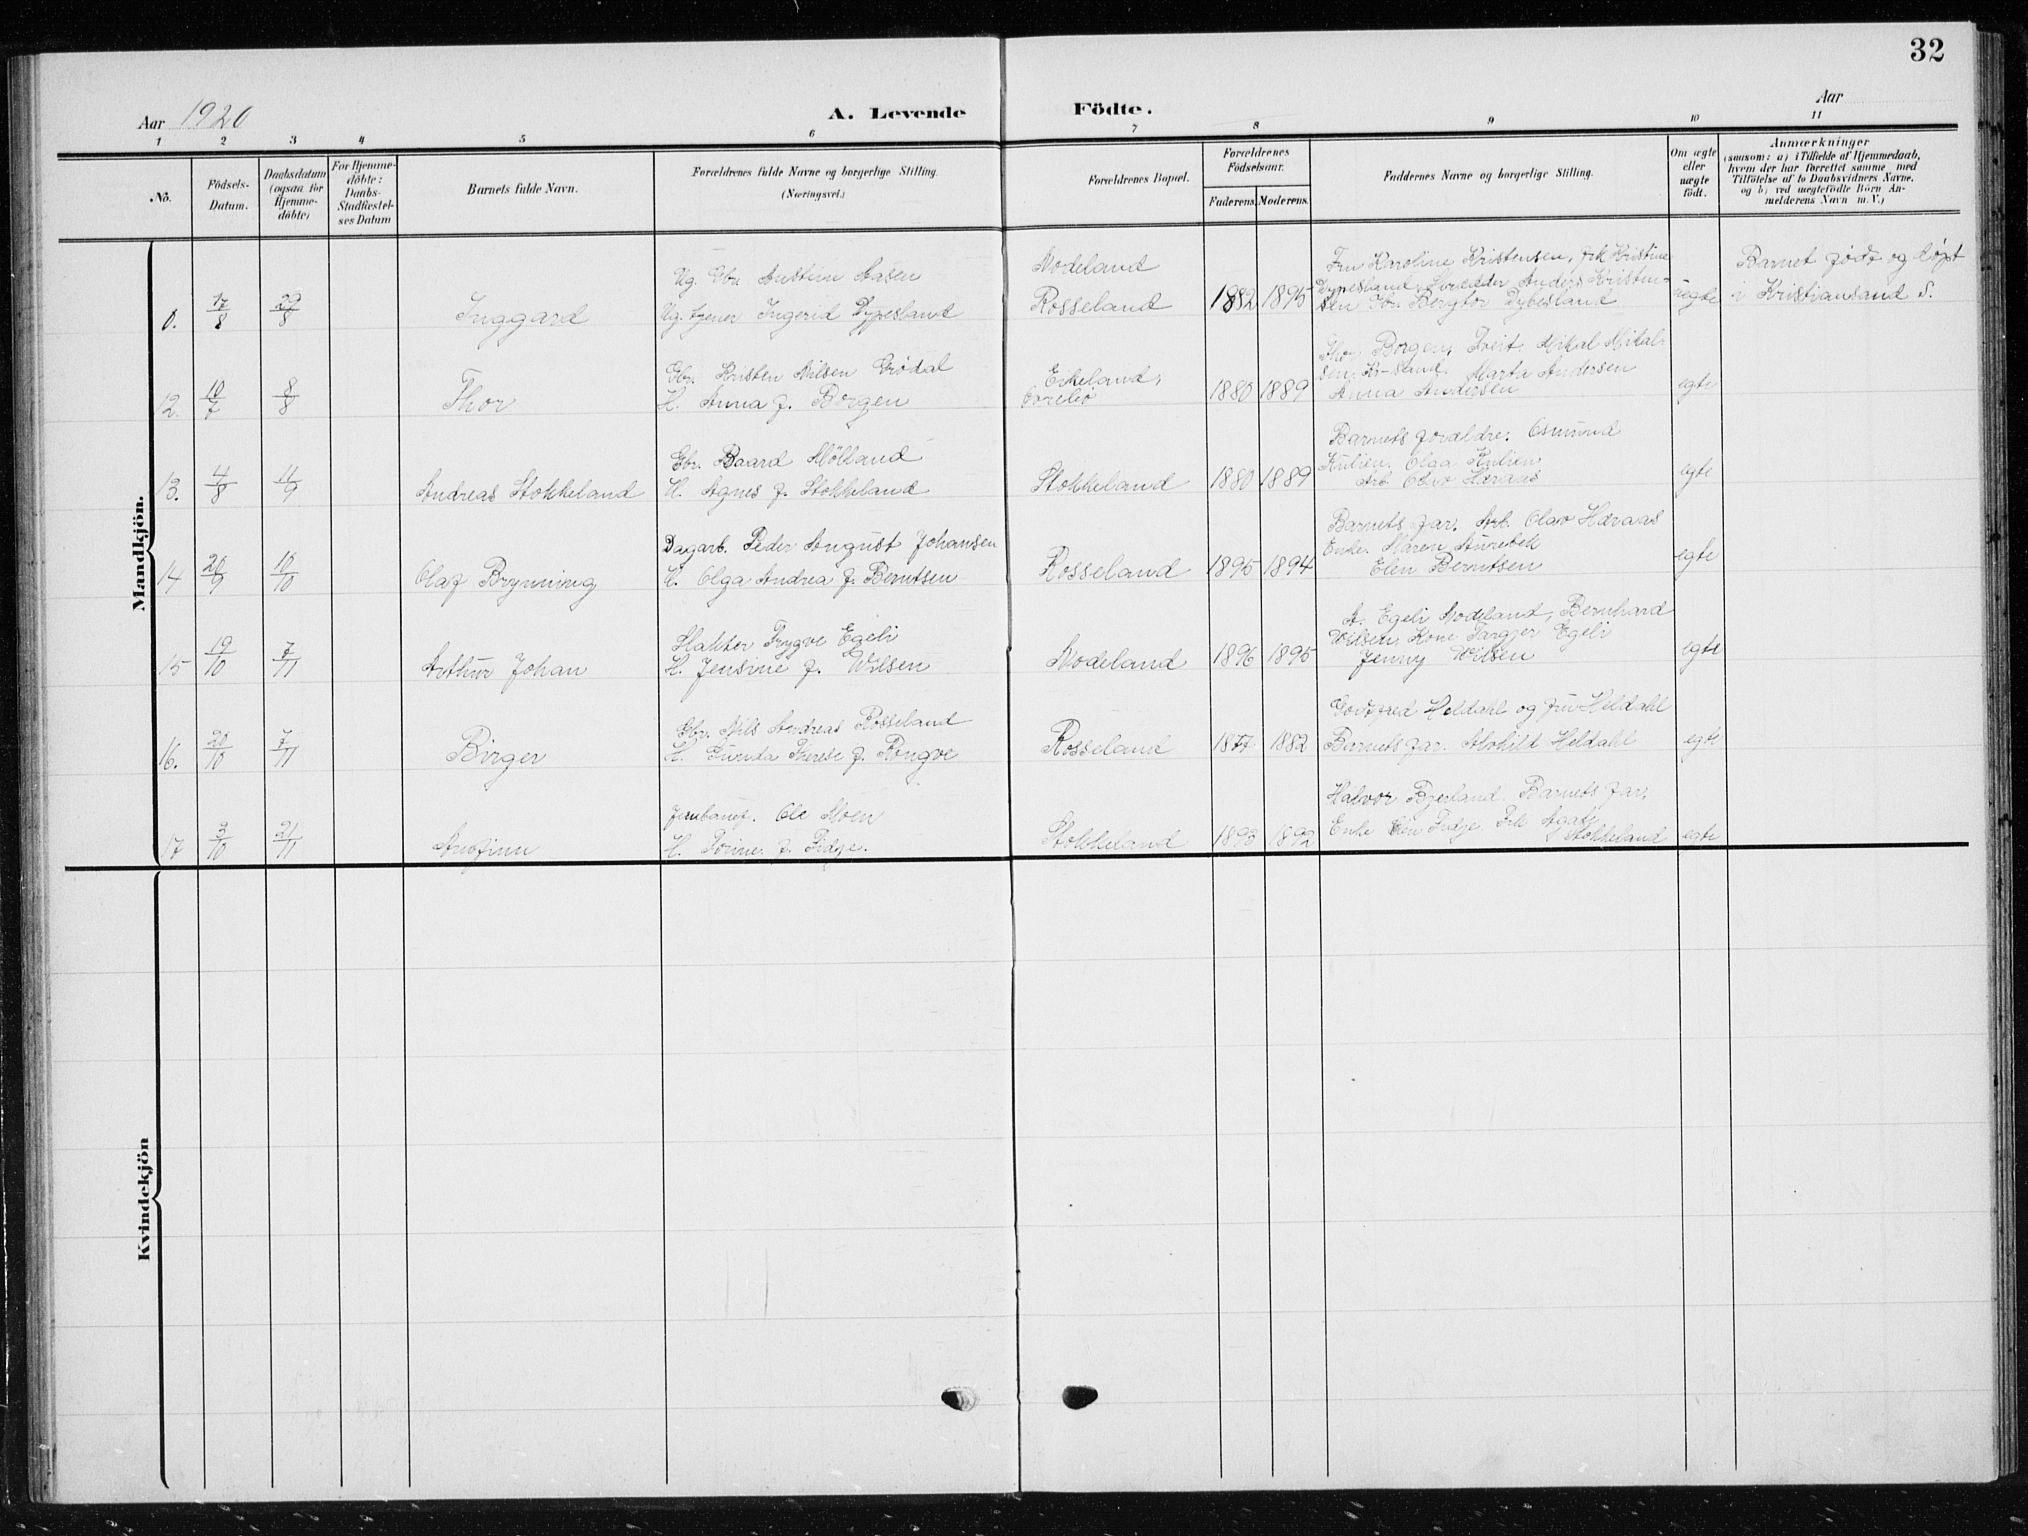 32
Aar 1920
A. Levende Födte.
Aar
1 2 3 4 5 6 7 8 9 10 11
No.
Födsels-
Datum.
Daabsdatum
(ogsaa for
Hjemme-
döbte)
For Hjemme-
döbte:
Daabs-
Stadfæstel-
ses Datum
Barnets fulde Navn.
Forældrenes fulde Navne og borgerlige Stilling.
(Næringsvei.)
Forældrenes Bopæl.
Forældrenes
Födselsaar.
Faderens. Moderens.
Faddernes Navne og borgerlige Stilling.
Om ægte
eller
uægte
födt.
Anmærkninger
(saasom: a) i Tilfælde af Hjemmedaab,
hvem der har forrettet samme, med
Tilföielse af to Daabsvidners Navne,
og b) ved uægtefödte Börn An-
melderens Navn m. V.)
Mandkjön.
0. 17/8 29/8 Inggard
Ug. Gbr. Austein Aasen
Ug. tjener Ingerid Dypesland
Nodeland
Rosseland
1882 1895
Fru Karoline Kristensen, frk Kristine
Dypesland, Skrædder Anders Kristen-
sen Gbr. Bergtor Dybesland
uegte
Barnet født og døpt
i Kristiansand S.
12. 10/7 8/8 Thor
Gbr. Kristen Nilsen Grødal
H. Anna f. Borgen
Eikeland,
1880 1889
Borgen, Tveit. Mikal Mikal-
sen, Kr-sand. Marta Andersen
Anna Andersen
egte
13. 4/8 4/9 Andreas Stokkeland
Gbr. Baard Mölland
H. Agnes f. Stokkeland
Stokkeland
1880 1889
Barnets forældre. Osmund
Kulien. Olga Kulien
Arb. Olav Hæraas
egte
14 20/9 10/10 Olaf Brynning
Dagarb. Peder August Johansen
H. Olga Andrea f. Berntsen
Rosseland
1895 1894
Barnets far. Arb. Olav Hæraas
Enke. Maren Aurebek
Elen Berntsen
egte
15 19/10 7/11 Arthur Johan
Slakter Trygve Egeli
H. Jensine f. Wilsen
Nodeland
1896 1895
A. Egeli Nodeland, Bernhard
Wilsen, Kone Targjer Egeli
Jenny Wilsen
egte
16. 20/10 7/11 Birger
Gbr. Nils Andreas Rosseland
H. Gunda Therese f. Rongve
Rosseland
1877 1882
Gotfred Heldahl og fru Heldahl
Barnets far. Alvhild Heldahl
egte
17 3/10 21/11 Arnfinn
Jernbanef. Ole Moen
H. Tonne f. Fidje.
Stokkeland
1893 1892
Halvor Bjerland. Barnets far,
Enke Elen Fidje. Frk Agate
Stokkeland
egte
Kvindekjön